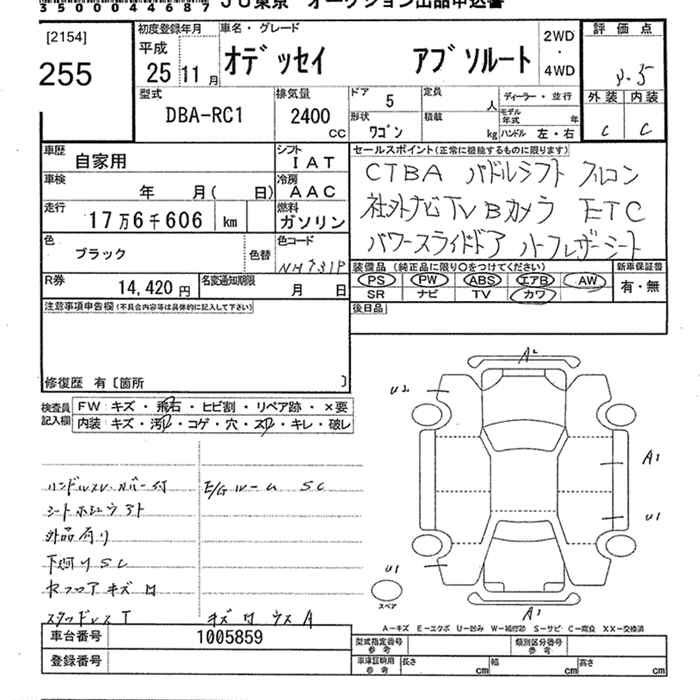 35000044687 JU東京 オークション出品申込書
[2154]
255
初度登録年月
平成
25 11 月
車名・グレード
オデッセイ アブソルート
2WD
・
4WD
評価点
外装 内装
C C
型式
DBA-RC1
排気量
2400
CC
ドア 5
定員 人
ディーラー・並行
形状 ワゴン
積載 kg
モデル年式 年
ハンドル 左・右
車歴 自家用
シフト IAT
車検 年 月( 日)
冷房 AAC
走行 17万6千606 km
燃料 ガソリン
色 ブラック
色替
色コード NH731P
R券 14,420 円
名変通知期限 月 日
セールスポイント(正常に稼働するものに限ります)
CTBA パドルシフト フルコン
社外ナビ TV Bカメラ ETC
パワースライドドア ハーフレザーシート
装備品(純正品に限り○をつけてください)
新車保証書
PS PW ABS エアB AW
SR ナビ TV カワ
有・無
後日品
注意事項申告欄(不具合内容等は具体的に記入して下さい)
修復歴 有〔箇所 〕
検査員
記入欄
FW キズ・飛石・ヒビ割・リペア跡・×要
内装 キズ・汚レ・コゲ・穴・スレ・キレ・破レ
ハンドルスレ カバー付
E/Gルーム SC
外品有り
下廻りSC
スタッドレスT
A2
U2
A1
U1
U1
A1
スペア
A-キズ E-エクボ U-凹み W-補修跡 S-サビ C-腐食 XX-交換済
車台番号 1005859
登録番号
型式指定番号
参考
類別区分番号
参考
車庫証明用
参考
長さ cm
幅 cm
高さ cm